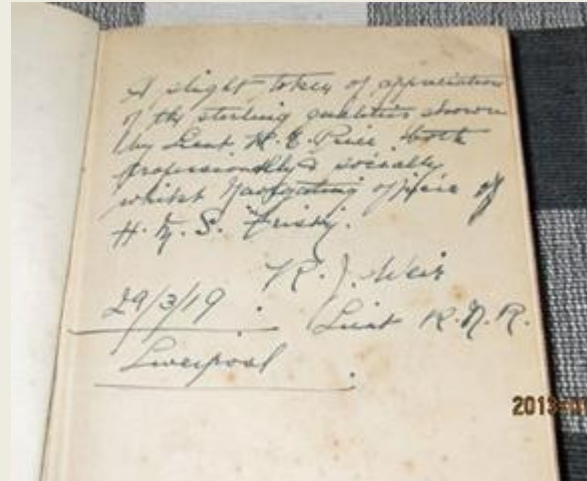 A slight token of appreciation
of the sterling qualities shown
by Lieut. H. E. Price both
professionally & socially
whilst Navigating officer of
H. M. S. Frisky.
R. J. Weir
29/3/19 . Lieut R. N. R.
Liverpool .
2013